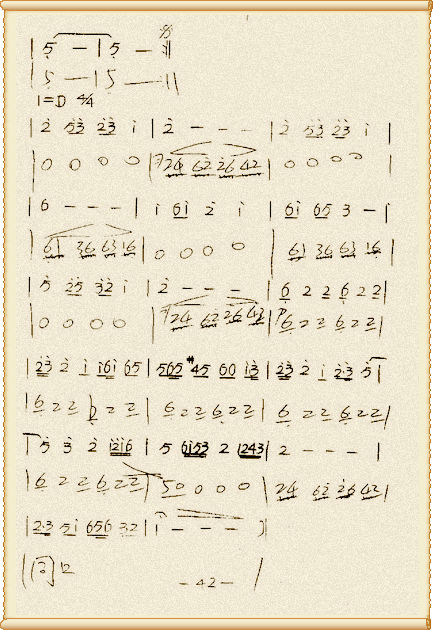 | 5 – | 5 – ||
| 5 — | 5 — ||
1=D 4/4
| 2 53 23 i | 2 – – – | 2 53 23 i |
| 0 0 0 0 | 24 62 26 42 | 0 0 0 0 |
| 6 – – – | i 6i 2 i | 6i 65 3 – |
| 61 36 63 16 | 0 0 0 0 | 61 36 63 16 |
| 5 25 32 i | 2 – – – | 6 2 2 6 2 2 |
| 0 0 0 0 | 24 62 26 42 | 6 2 2 6 2 2 |
| 23 2 i i6i 65 | 565 #45 60 13 | 23 2 i 2·3 5 |
| 6 2 2 6 2 2 | 6 2 2 6 2 2 | 6 2 2 6 2 2 |
| 5 3 2 i2i6 | 5 6i53 2 1243 | 2 – – – |
| 6 2 2 6 2 2 | 50 0 0 0 | 24 62 26 42 |
| 2·3 5i 656 32 | i – – – ||
– 42 –